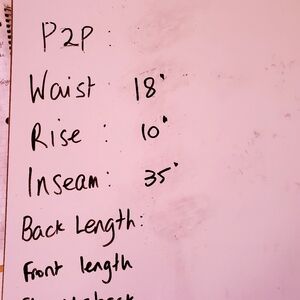 P2P :
Waist : 18'
Rise : 10'
Inseam : 35'
Back Length:
Front length